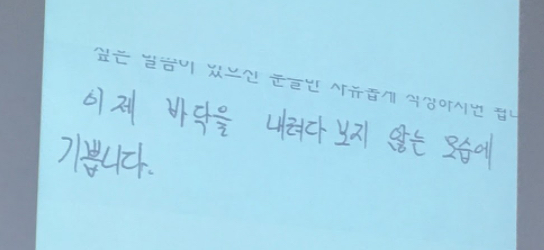 싶은 말씀이 있으신 분들만 자유롭게 작성하시면 됩니
이제 바닥을 내려다 보지 않는 모습에
기쁩니다.